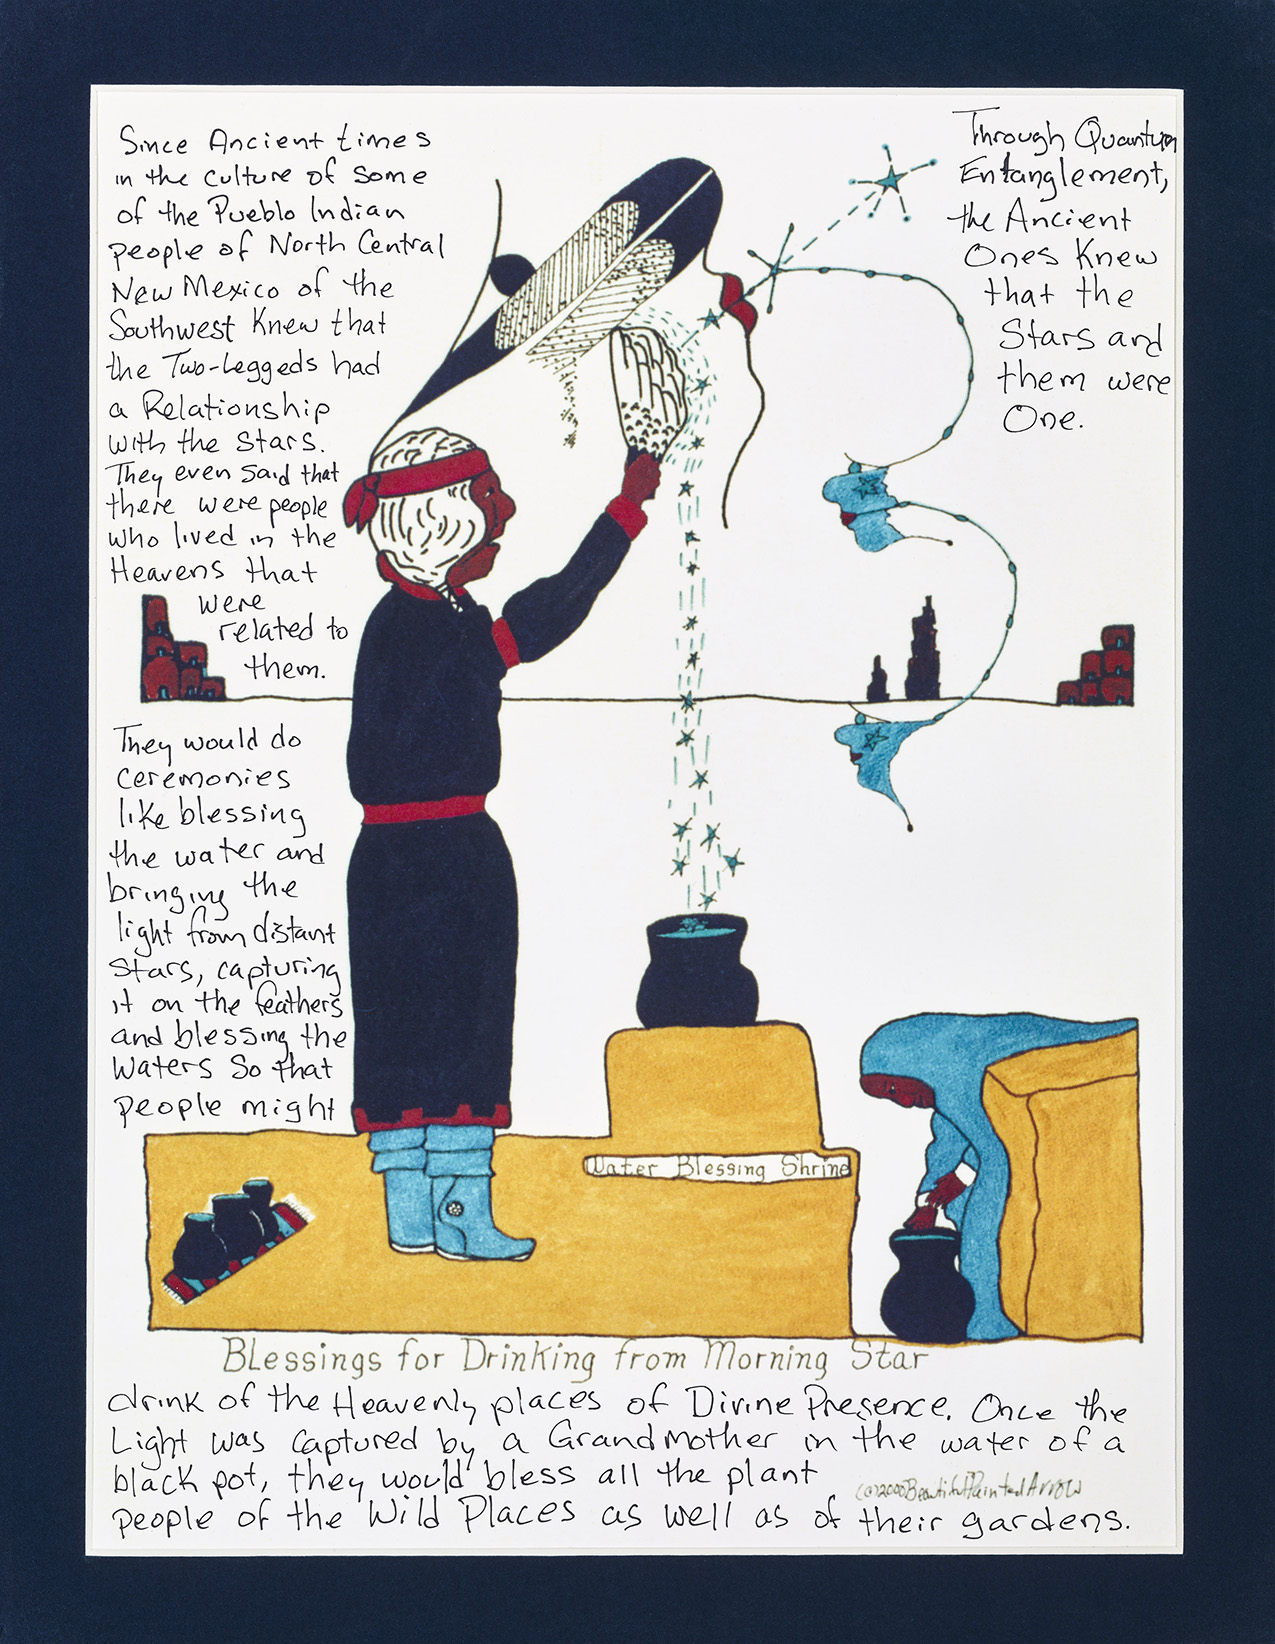 Since Ancient times
in the culture of some
of the Pueblo Indian
people of North Central
New Mexico of the
Southwest Knew that
the Two-Leggeds had
a Relationship
with the stars.
They even said that
there were people
who lived in the
Heavens that
were
related to
them.
They would do
ceremonies
like blessing
the water and
bringing the
light from distant
stars, capturing
it on the feathers
and blessing the
waters so that
people might
drink of the Heavenly places of Divine Presence. Once the
Light was captured by a Grandmother in the water of a
black pot, they would bless all the plant
people of the Wild Places as well as of their gardens.
Through Quantum
Entanglement,
the Ancient
Ones Knew
that the
Stars and
them were
One.
Water Blessing Shrine
Blessings for Drinking from Morning Star
(c) 2000 Beautiful Painted Arrow